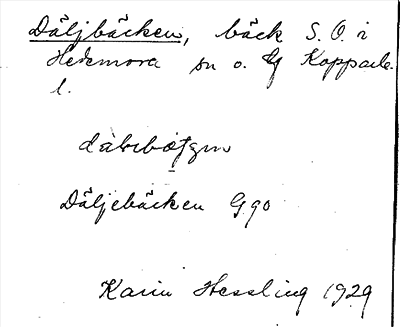 Däljbäcken, bäck S. O. i
Hedemora sn o. Kopparb.
l.
Däljebäcken G 90
Karin Hessling 1929